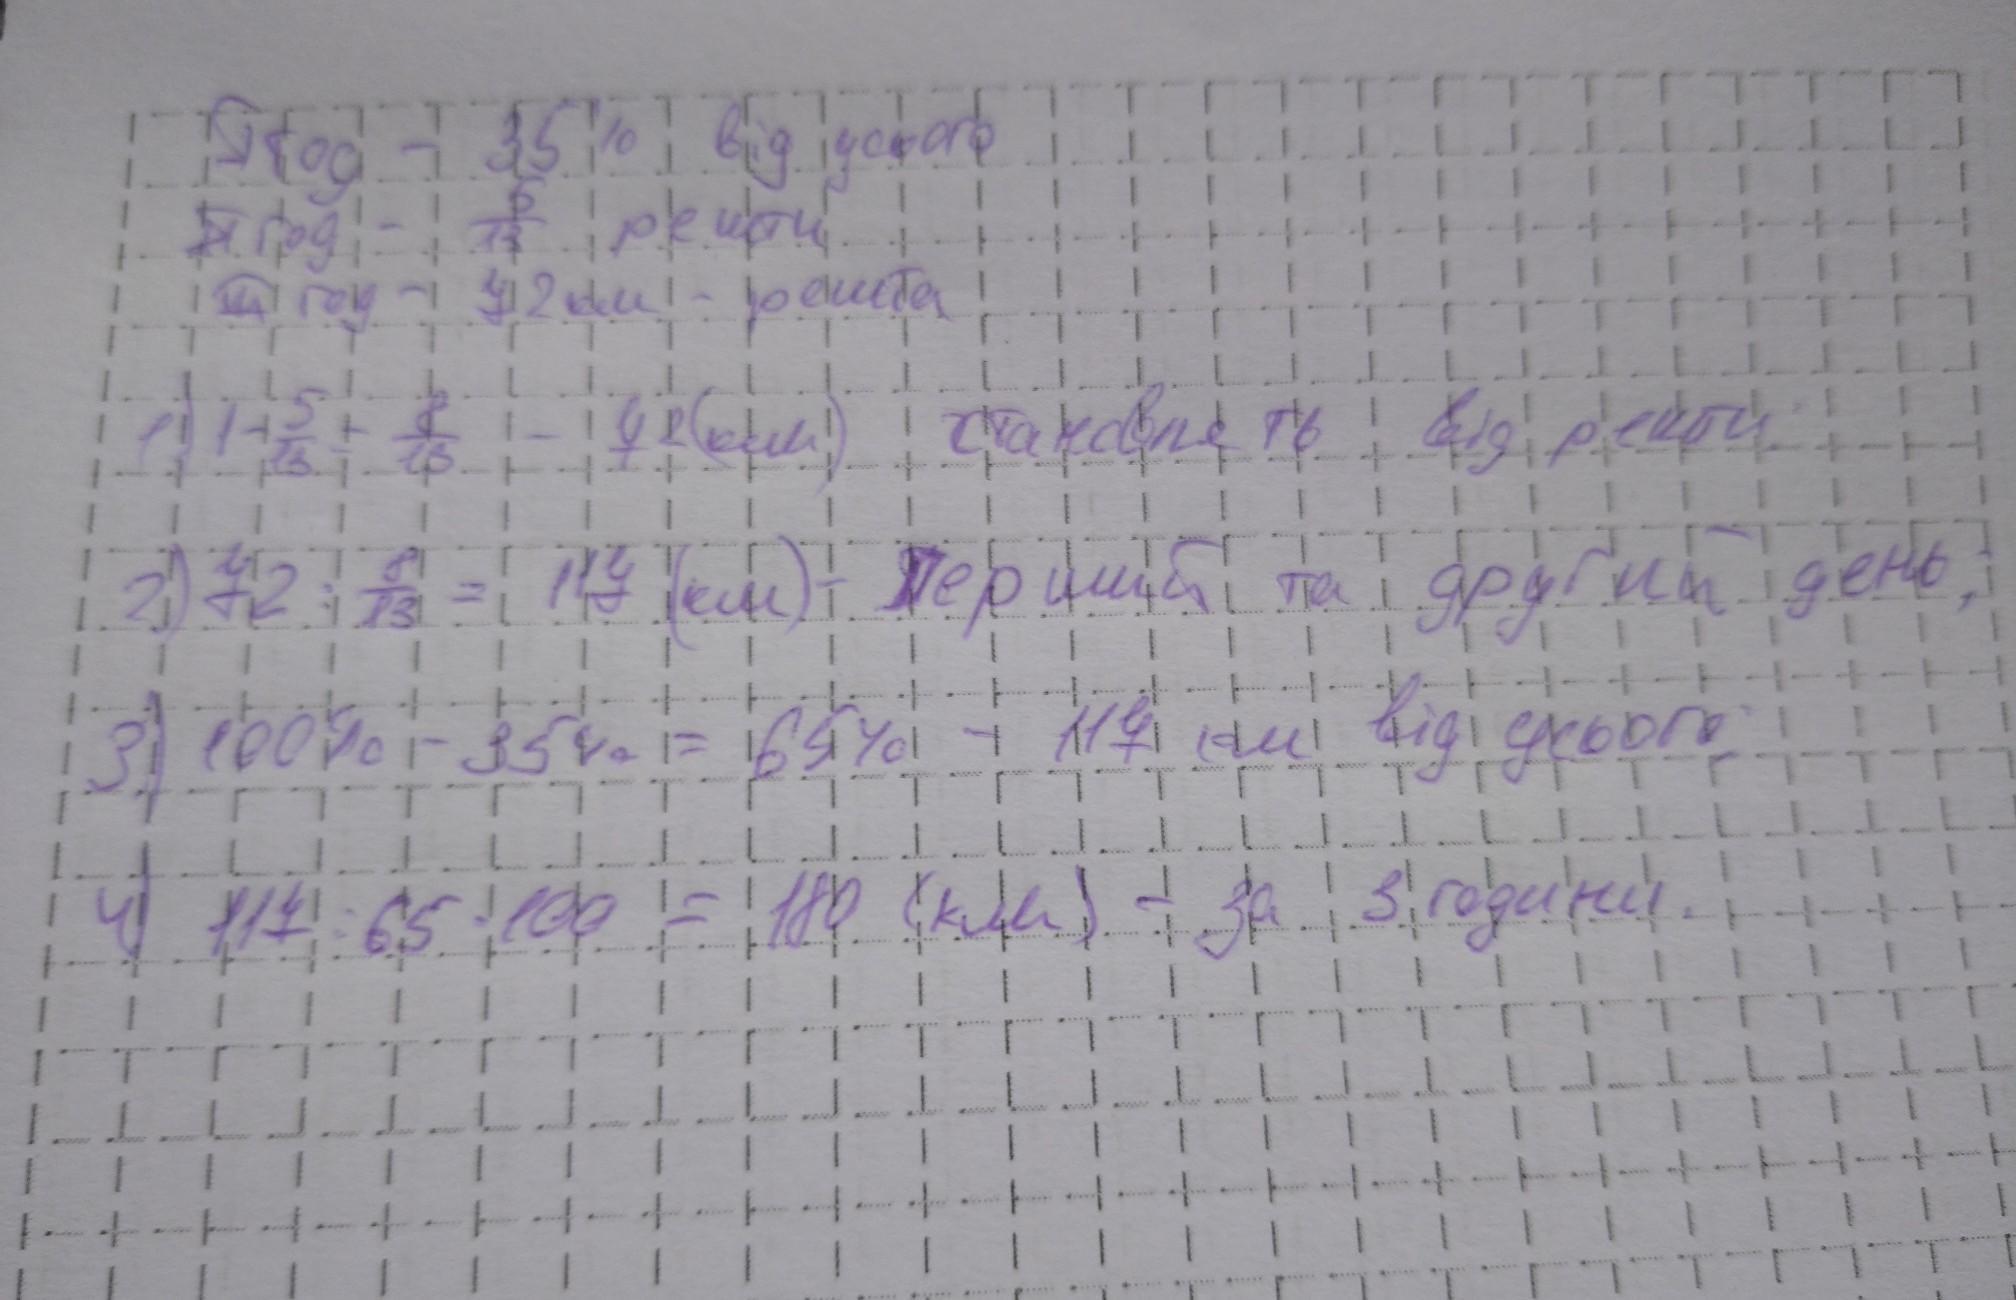 I год - 35% від усього
II год - 5/13 решти
III год - 72 км - решта
1) 1 - 5/13 = 8/13 - 72 (км) становлять від решти
2) 72 : 8/13 = 117 (км) - Перший та другий день;
3) 100% - 35% = 65% - 117 км від усього;
4) 117 : 65 · 100 = 180 (км) - за 3 години.